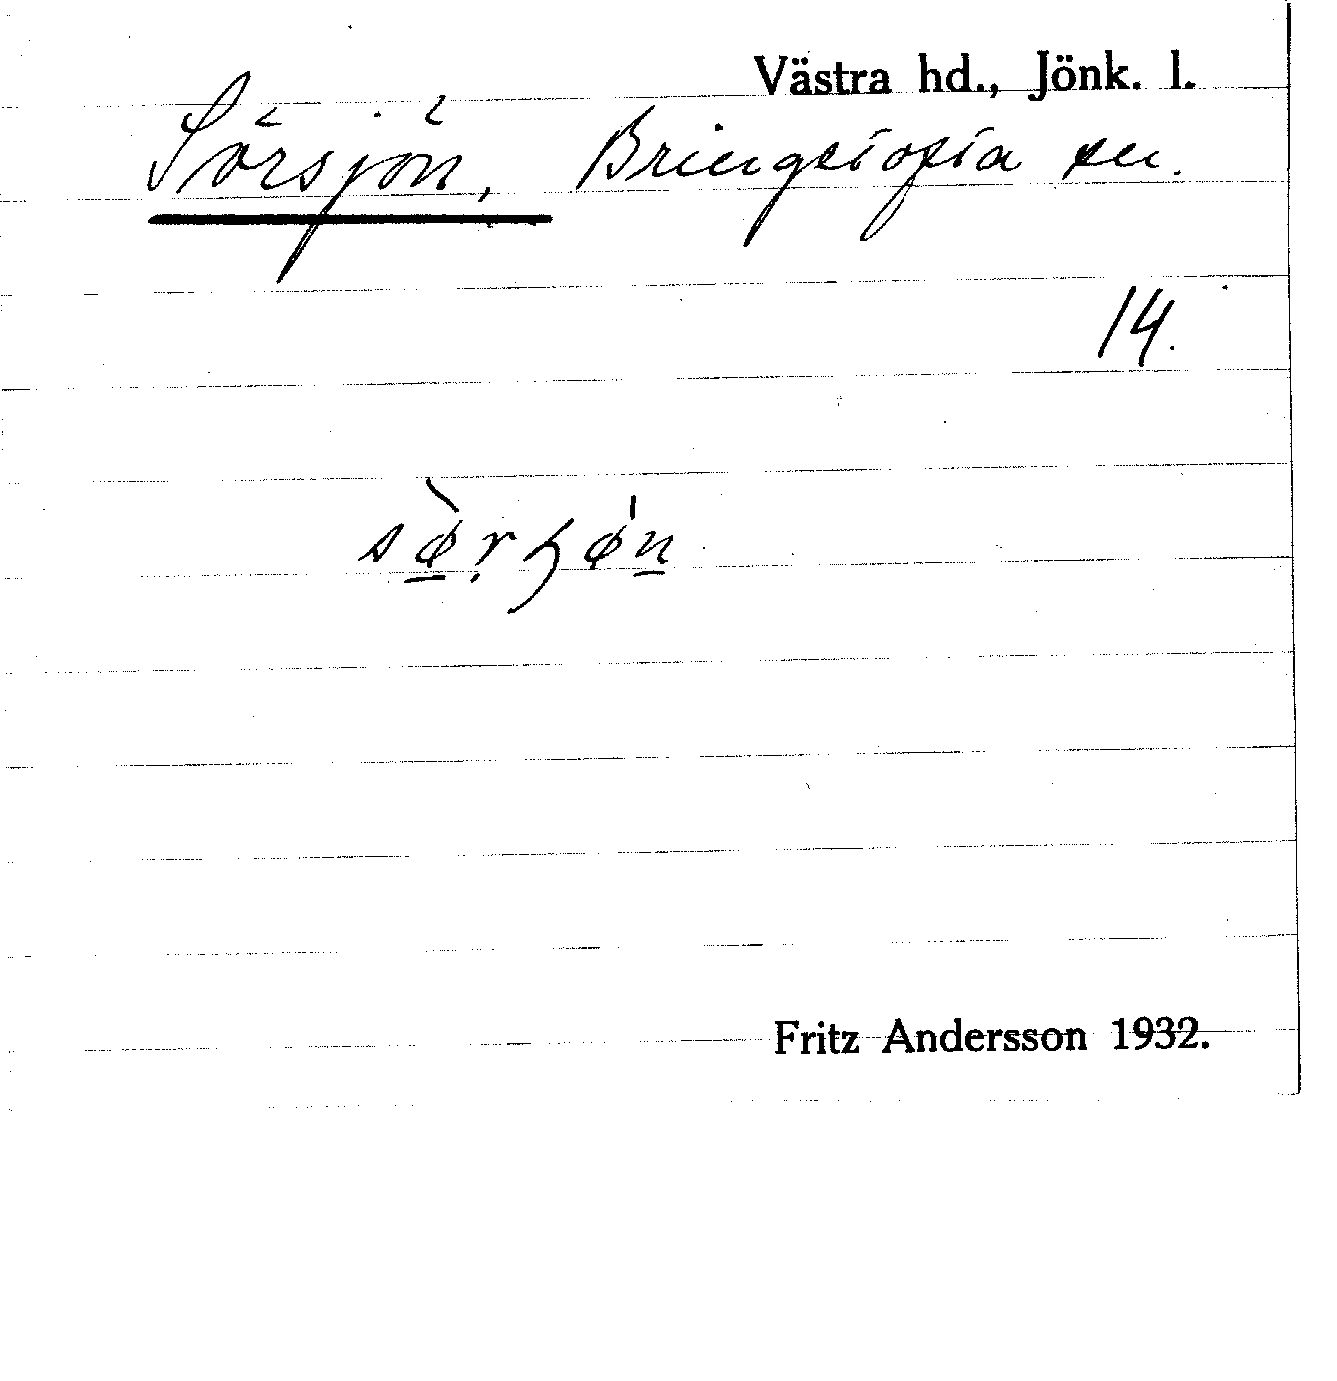 Västra hd., Jönk. l.
Sörsjön, Bringetofta sn.
14.
Fritz Andersson 1932.